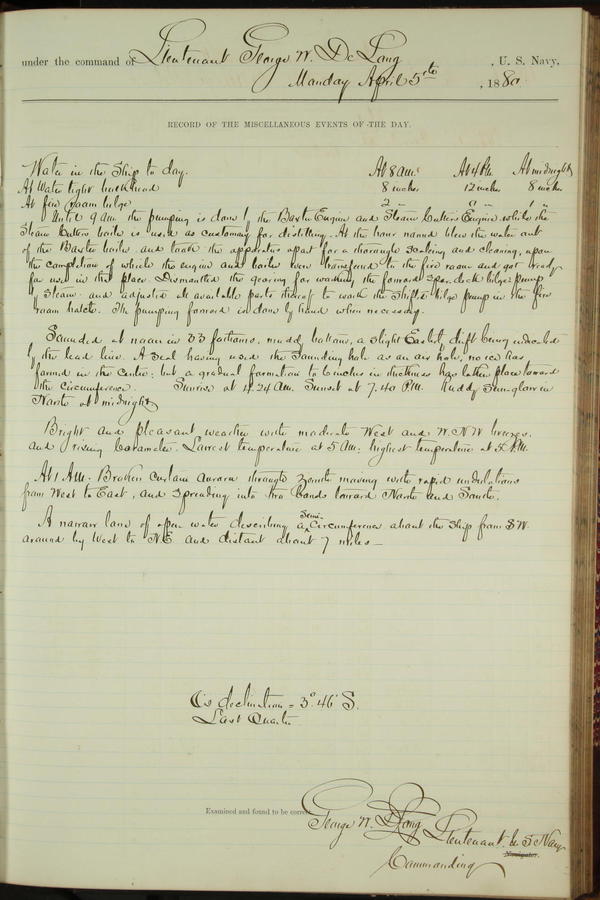 under the command of Lieutenant George W. De Long, U. S. Navy,
Monday April 5th, 1880
RECORD OF THE MISCELLANEOUS EVENTS OF THE DAY.
Water in the Ship to day. At 8 a.m. At 4 P.M. At midnight
At Water tight bulkhead 8 inches 12 inches 8 inches
At fire room bilge 2 "
Until 9 a.m. the pumping is done by the Baxter Engine and Steam Cutter's Engine, while the
Steam Cutter's boiler is used as customary for distilling. At the hour named blew the water out
of the Baxter boiler, and took the apparatus apart for a thorough scaling and cleaning, upon
the completion of which the engine and boiler were transferred to the fire room and got ready
for use in that place. Dismantled the gearing for working the forward spar deck bilge pump
by steam and adjusted all available parts thereof to work the Ship's bilge pump in the fire
room hatch. The pumping forward is done by hand when necessary.
Sounded at noon in 33 fathoms, muddy bottom, a slight Easterly drift being indicated
by the lead line. A Seal having used the Sounding hole as an air hole, no ice has
formed in the Centre; but a gradual formation to 6 inches in thickness has taken place toward
the circumference. Sunrise at 4.24 AM. Sunset at 7.40 P.M. Ruddy Sun-glow in
North at midnight
Bright and pleasant weather with moderate West and W.N.W. breezes,
and rising barometer. Lowest temperature at 5 AM: highest temperature at P.M.
At 1 A.M. Broken curtain aurora through Zenith moving with rapid undulations
from West to East, and Spreading into two bands toward North and South.
A narrow lane of open water describing a Semi-Circumference about the Ship from SW.
around by West to N.E. and distant about 7 miles —
declination = 3° 46' S.
Last Quarter
Examined and found to be correct.
George W. De Long Lieutenant U S Navy
Navigator.
Commanding